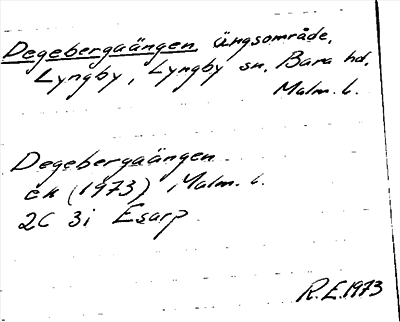 Degebergaängen, ängsområde,
Lyngby, Lyngby sn, Bara hd.
Malm. l.
Degebergaängen
ek (1973) Malm. l.
2C 3i Esarp
R.E. 1973